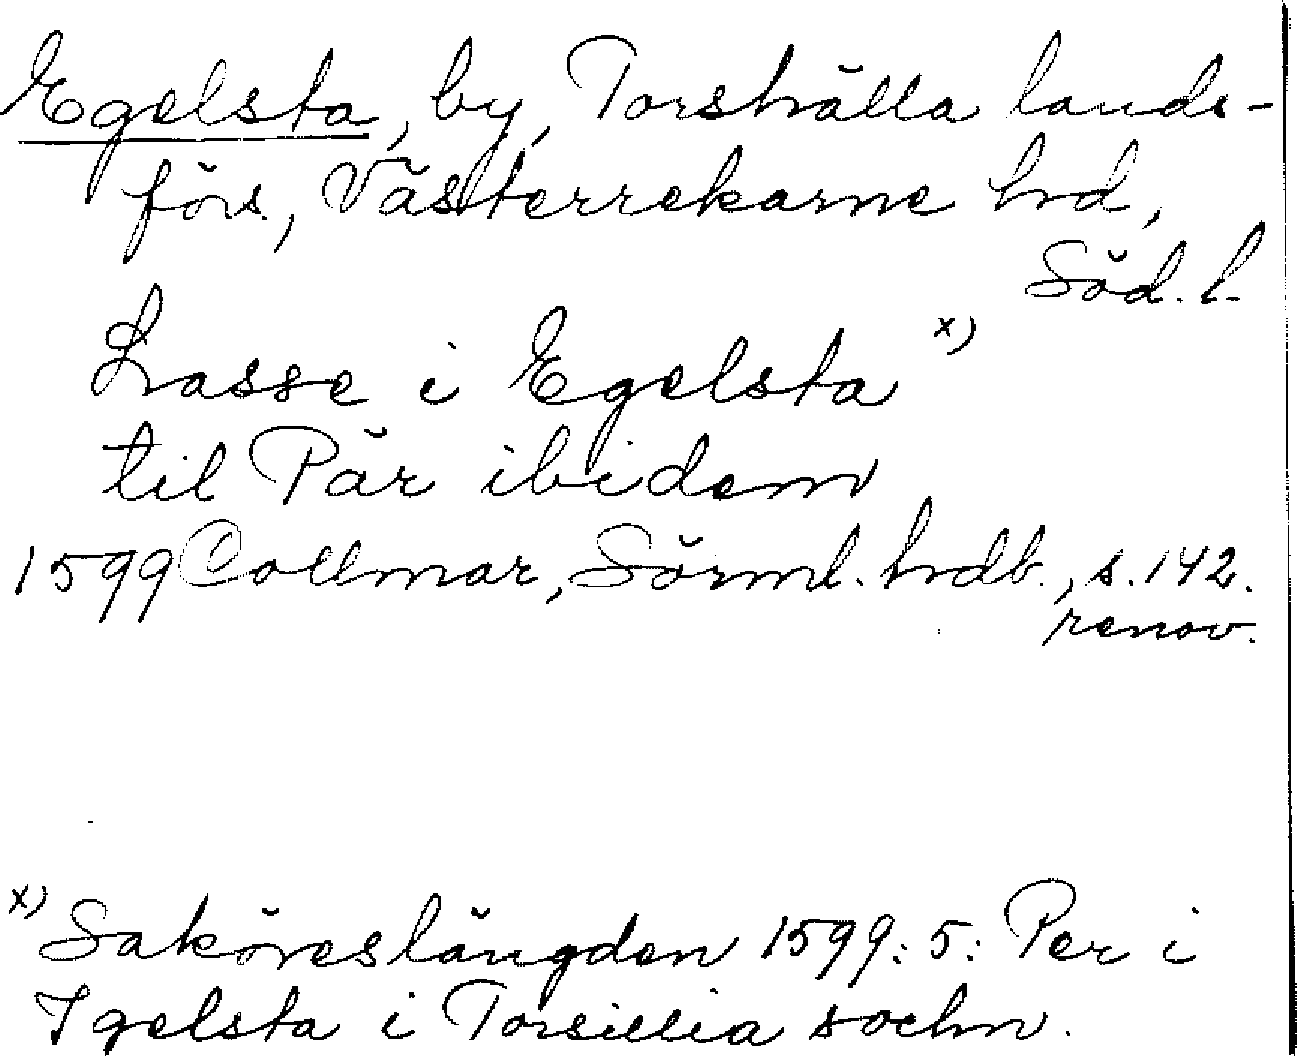 Egelsta, by, Torshälla lands-
förs., Västerrekarne hd,
Söd. l.
Lasse i Egelsta x)
til Pär ibidem
1599 Collmar, Sörml. hdb., s. 142.
renov.
x) Saköreslängden 1599: 5: Per i
Igelsta i Torsillia sochn.